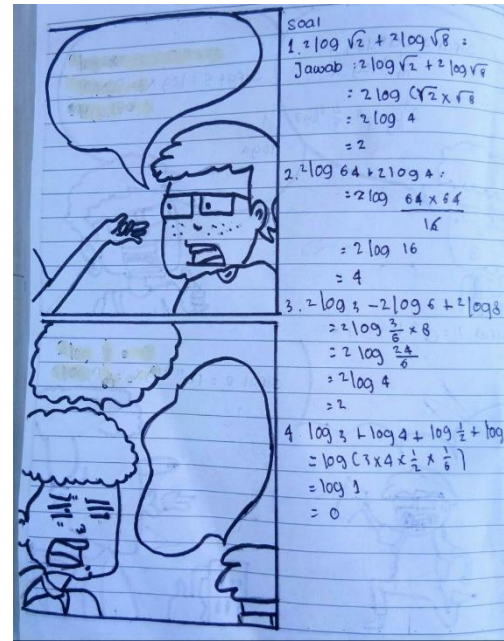 Soal
1. ²log √2 + ²log √8 =
Jawab : 2log √2 + ²log √8
= 2log (√2 × √8
= 2log 4
= 2
2. ²log 64 + 2log 4 :
= 2log (64 × 64)/16
= 2log 16
= 4
3. ²log 3 - 2log 6 + ²log 8
= 2log 3/6 × 8
= 2log 24/6
= ²log 4
= 2
4. log 3 + log 4 + log 1/2 + log
= log (3 × 4 × 1/2 × 1/6)
= log 1
= 0